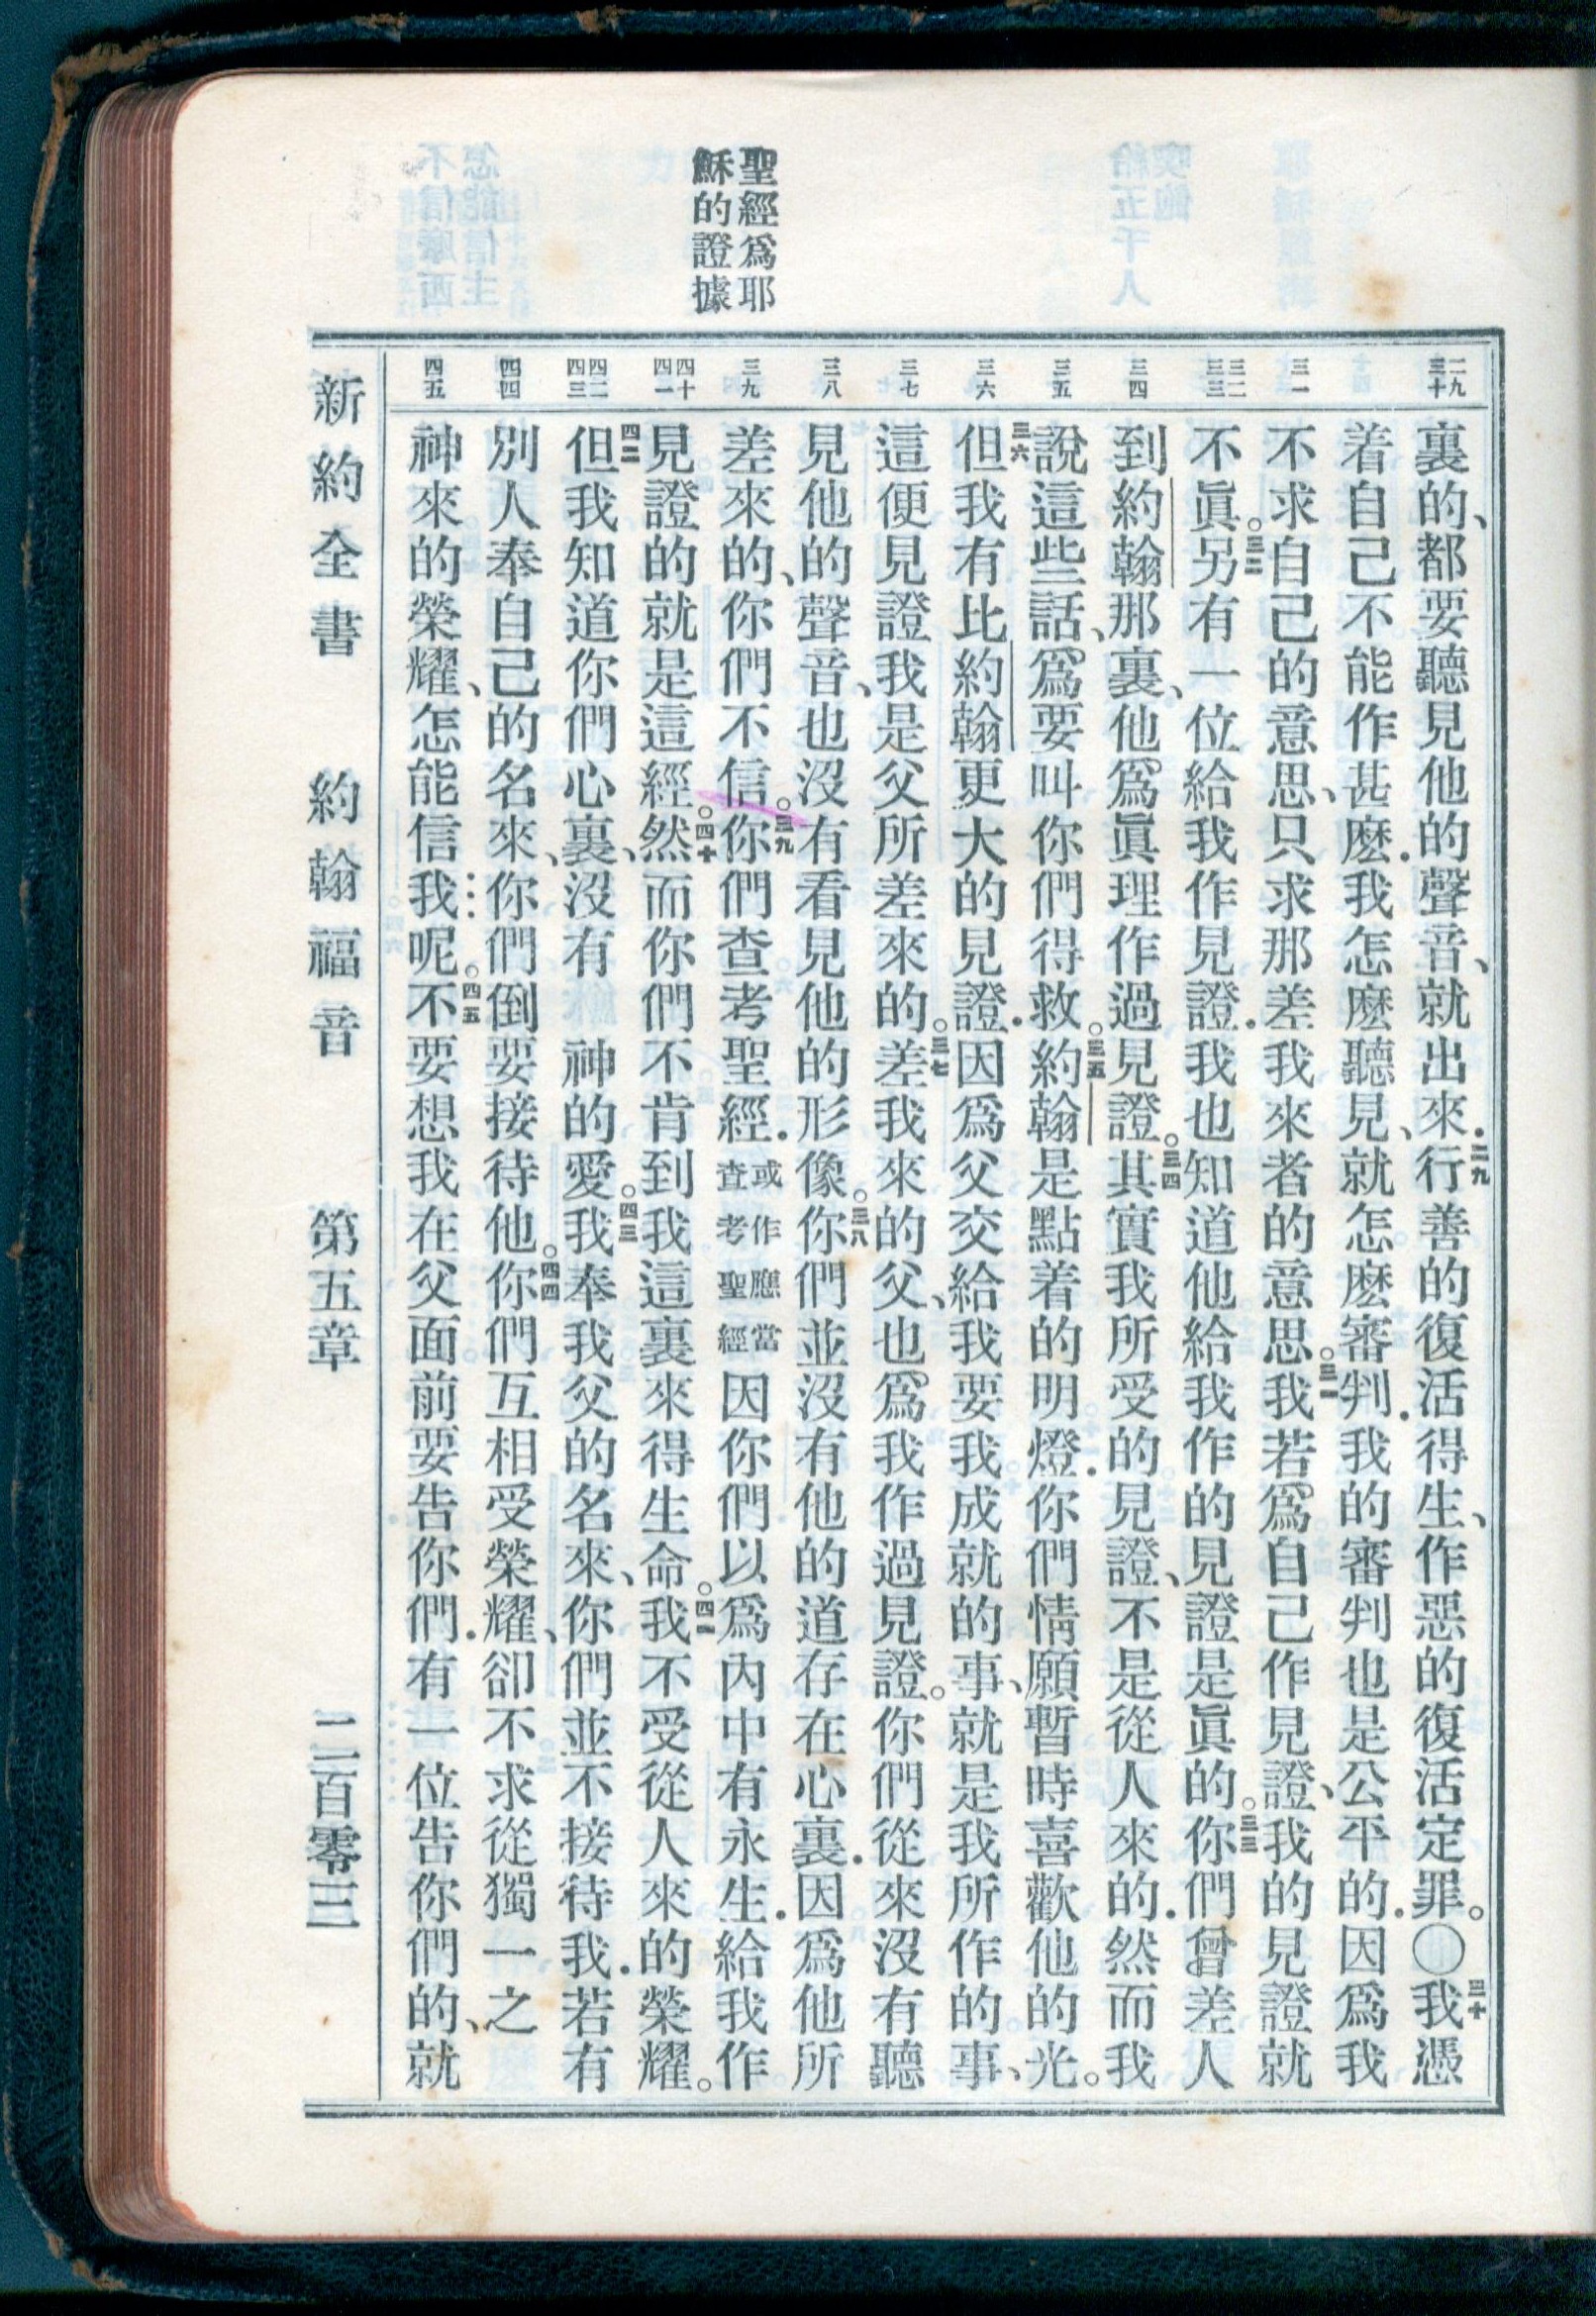 聖經爲耶
穌的證據
二九
三十
三一
三二
三三
三四
三五
三六
三七
三八
三九
四十
四一
四二
四三
四四
四五
裏的、都要聽見他的聲音、就出來．二九行善的復活得生、作惡的復活定罪。〇三十我憑
着自己不能作甚麽．我怎麽聽見、就怎麽審判．我的審判也是公平的．因爲我
不求自己的意思、只求那差我來者的意思。三一我若爲自己作見證、我的見證就
不眞。三二另有一位給我作見證．我也知道他給我作的見證是眞的。三三你們曾差人
到約翰那裏、他爲眞理作過見證。三四其實我所受的見證、不是從人來的．然而我
說這些話、爲要叫你們得救。三五約翰是點着的明燈．你們情願暫時喜歡他的光。
三六但我有比約翰更大的見證．因爲父交給我要我成就的事、就是我所作的事、
這便見證我是父所差來的。三七差我來的父、也爲我作過見證。你們從來沒有聽
見他的聲音、也沒有看見他的形像。三八你們並沒有他的道存在心裏．因爲他所
差來的、你們不信。三九你們查考聖經．或作應當查考聖經因你們以爲內中有永生．給我作
見證的就是這經。四十然而你們不肯到我這裏來得生命。四一我不受從人來的榮耀。
四二但我知道你們心裏、沒有　神的愛。四三我奉我父的名來、你們並不接待我．若有
別人奉自己的名來、你們倒要接待他。四四你們互相受榮耀、卻不求從獨一之
神來的榮耀、怎能信我呢。四五不要想我在父面前要告你們．有一位告你們的、就
新約全書　約翰福音　第五章　二百零三